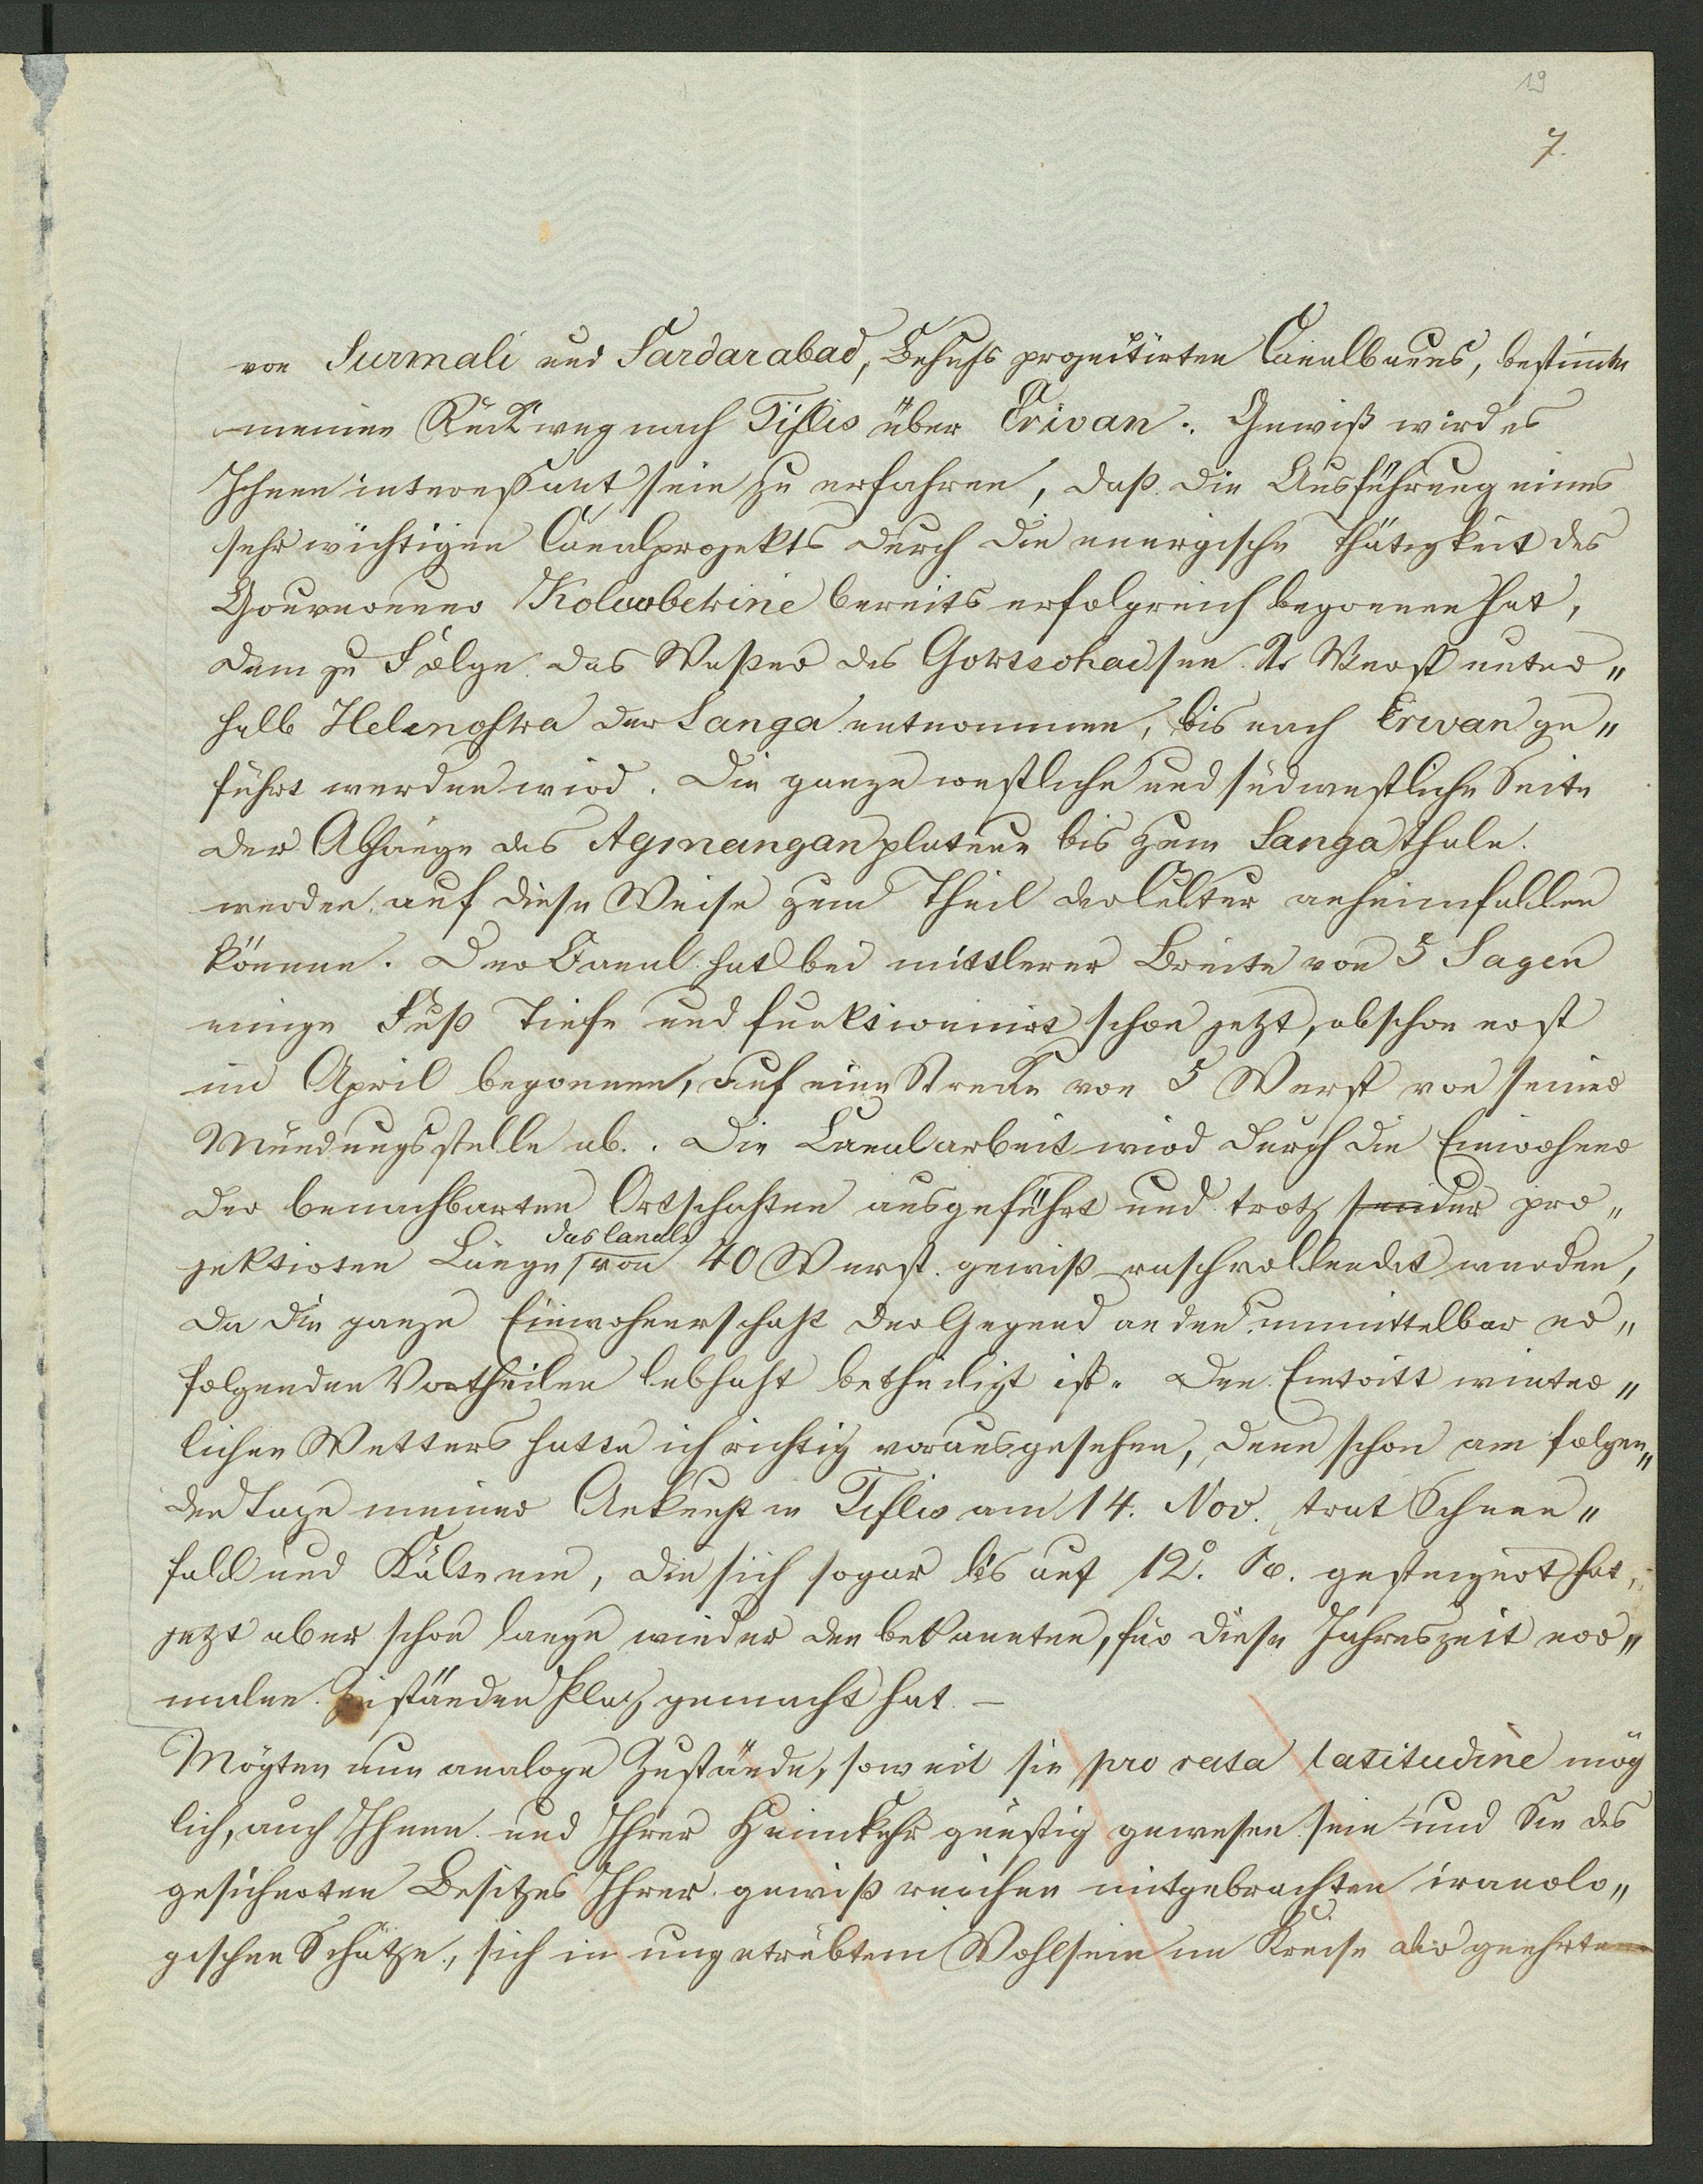 19
7.
von Surmali und Sardarabad, Behufs projectirten Canalbaues, bestimmte
meinen Rückweg nach Tiflis über Erivan. Gewiß wird es
Ihnen interessant sein zu erfahren, daß die Ausführung eines
sehr wichtigen Canalprojekts durch die energische Thätigkeit des
Gouverneurs bereits erfolgreich begonnen hat,
dem zu Folge das Wasser des Goktschaisees Werst unter„
halb Helenofka der Sanga entnommen, bis nach Erivan ge„
führt werden wird. Die ganze westliche und südwestliche Seite
der Abhänge des Agmangan plateaus bis zum Sanga thale
werden auf diese Weise zum Theil der Cultur anheimfallen
können. Der Canal hat bei mittlerer Breite von 5 Sagen
einige Fuß Tiefe und funktionnirt schon jetzt, obschon erst
im April begonnen, auf eine Strecke von 5 Werst von seiner
Mündungsstelle ab. Die Canalarbeit wird durch die Einwohner
der benachbarten Ortschaften ausgeführt und trotz der pro„
des Canals
jektirten Länge von 40 Werst gewiß rasch vollendet werden,
da die ganze Einwohnerschaft der Gegend an den unmittelbar er„
folgenden Vortheilen lebhaft betheiligt ist. Den Eintritt winter„
lichen Wetters hatte ich richtig vorausgesehen, denn schon am folgen„
den Tage meiner Ankunft in Tiflis am 14. Nov. trat Schnee„
fall und Kälte ein, die sich sogar bis auf 12°. R. gesteigert hat,
jetzt aber schon lange wieder den bekannten, für diese Jahreszeit nor„
malen Zuständen Platz gemacht hat. –
Mögten nun analoge Zustände, soweit sie pro rata latitudine mög
lich, auch Ihnen und Ihrer Heimkehr günstig gewesen sein und Sie des
gesicherten Besitzes Ihrer gewiß reichen mitgebrachten iranolo„
gischen Schätze, sich in ungetrübtem Wohlsein im Kreise der geehrten